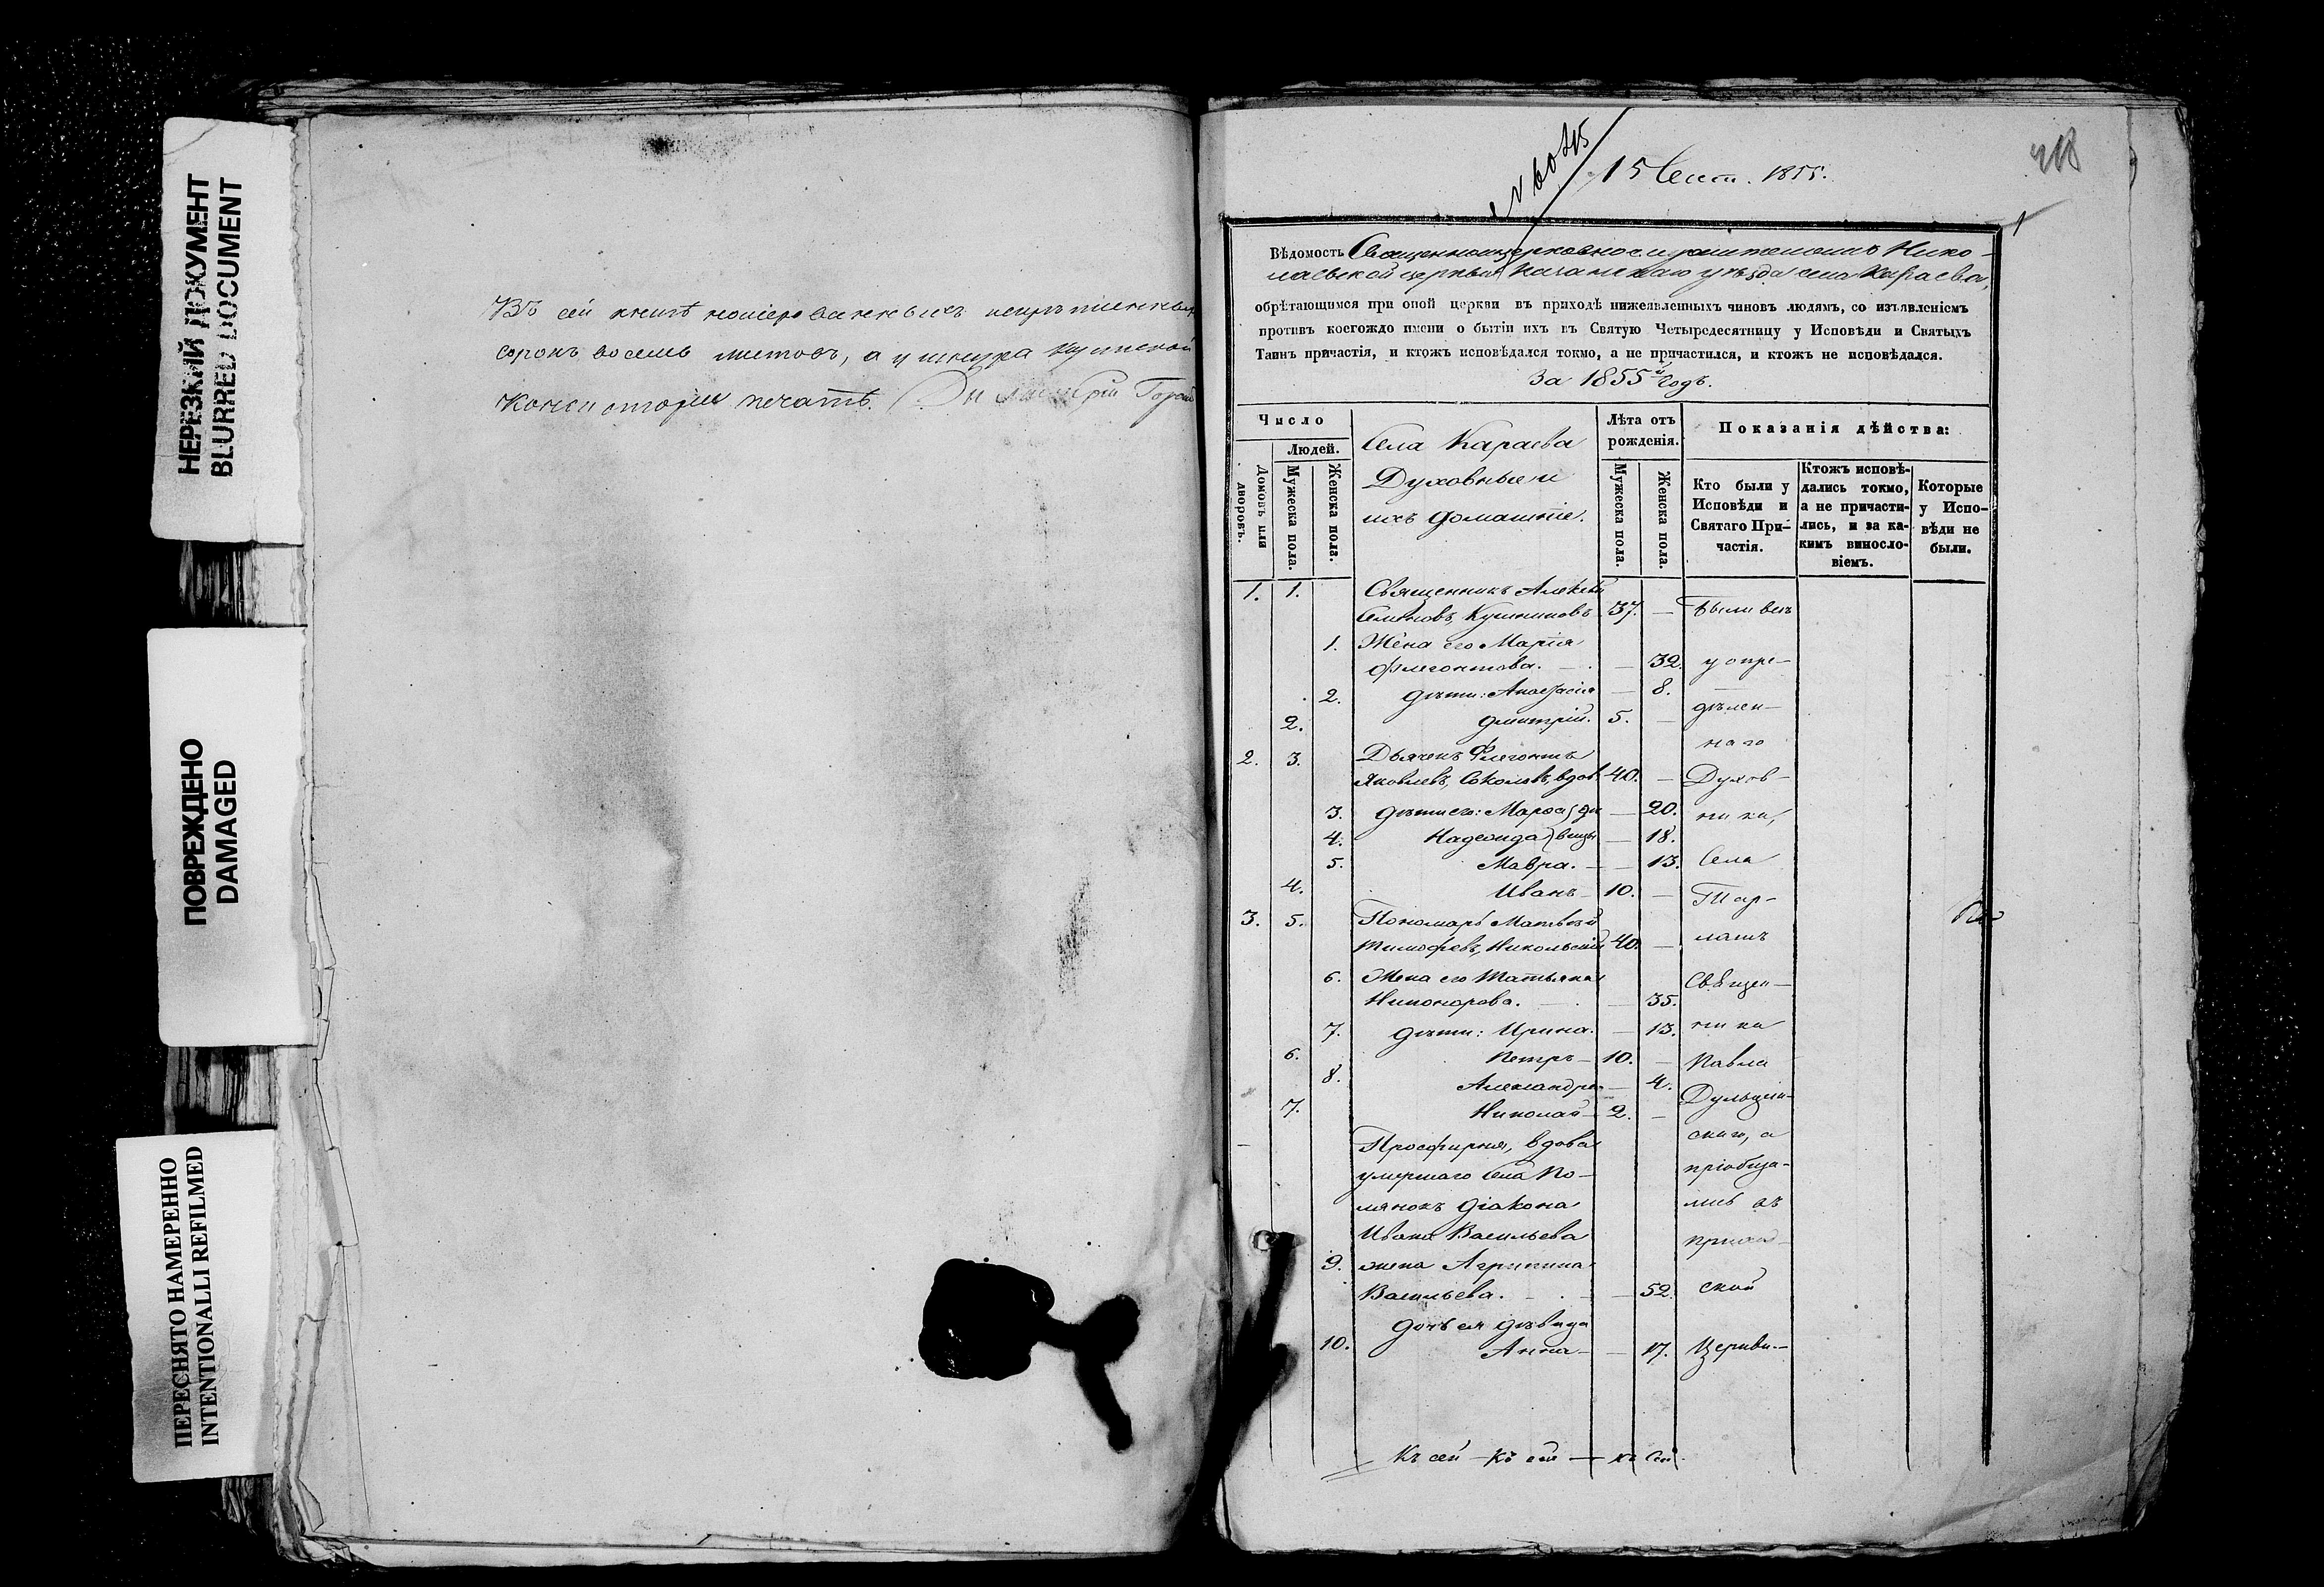 НЕРЕЗКИЙ ДОКУМЕНТ
BLURRED DOCUMENT
ПОВРЕЖДЕНО
DAMAGED
ПЕРЕСНЯТО НАМЕРЕННО
INTENTIONALLI REFILMED
Въ сей книгѣ номерованныхъ
сорокъ восемь листовъ, а у шнура
Консисторіи печать.
15 Сент. 1855.
Вѣдомость Священноцерковнослужителямъ Нико-
лаевской церкви уѣзда села Караева,
обрѣтающимся при оной церкви въ приходѣ нижеявленныхъ чиновъ людямъ, со изъявленіемъ
противъ коегождо имени о бытіи ихъ въ Святую Четыредесятницу у Исповѣди и Святыхъ
Таинъ причастія, и ктожъ исповѣдался токмо, а не причастился, и ктожъ не исповѣдался.
За 1855й годъ.
Число
Людей.
Домовъ или дворовъ.
Мужеска пола.
Женска пола.
Села Караева
Духовные и
ихъ домашніе.
Лѣта отъ рожденія.
Мужеска пола.
Женска пола.
Показанія дѣйства:
Кто были у Исповѣди и Святаго Причастія.
Ктожъ исповѣдались токмо, а не причастились, и за какимъ винословіемъ.
Которые у Исповѣди не были.
1. 1. Священникъ Алексѣй
Семеновъ, 37. — Были всѣ
1. Жена его Марія
Флегонтова. — 32. у опре-
2. дѣти: Анастасія — 8.
2. Дмитрій. 5. — дѣлен-
наго
2. 3. Дьячекъ Флегонтъ
Яковлевъ, Соколовъ, вдов. 40. — Духов-
3. дѣти его: Марфа дѣ — 20. ника,
4. Надежда вицы — 18.
5. Мавра. — 13. Села
4. Иванъ 10. —
3. 5. Пономарь Матвѣй
Тимофеевъ, Никольскій 40. — латъ
6. Жена его Татьяна Священ-
Никонорова. — 35.
7. дѣти: Ирина. — 13. ника
6. Петръ 10. — Павла
8. Александра — 4.
7. Николай 2. —
Просфирня, вдова скаго, а
умершаго села По- пріобща-
лянокъ діакона лись въ
Ивана Васильева
9. жена Агрипина
Васильева. — 52. ской
дочь ея дѣвица
10. Анна — 17. Церкви.
Къ сей — къ сей — къ сей